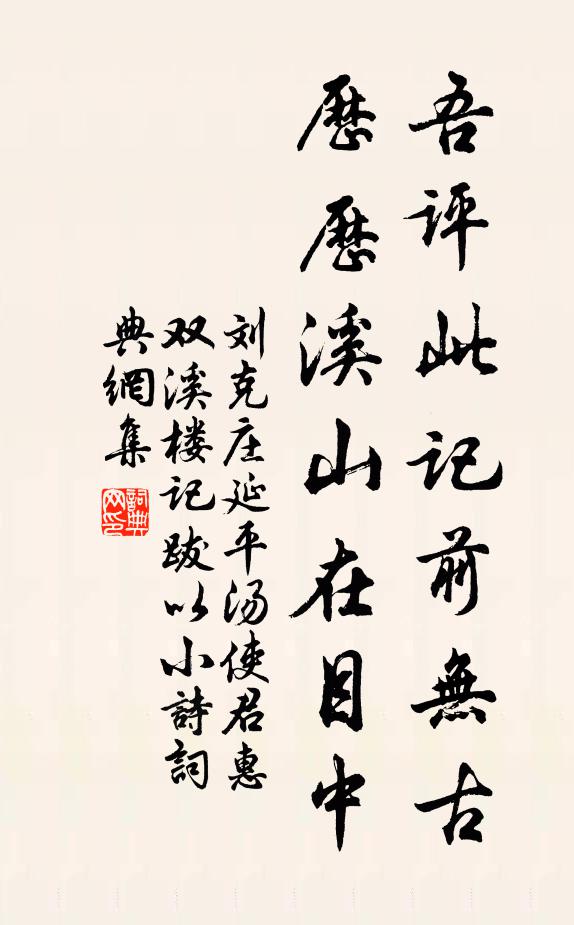 吾评此记前無古
歷歷溪山在目中
刘克庄延平汤使君惠
双溪楼记跋以小詩詞
典網集
詞典
网印